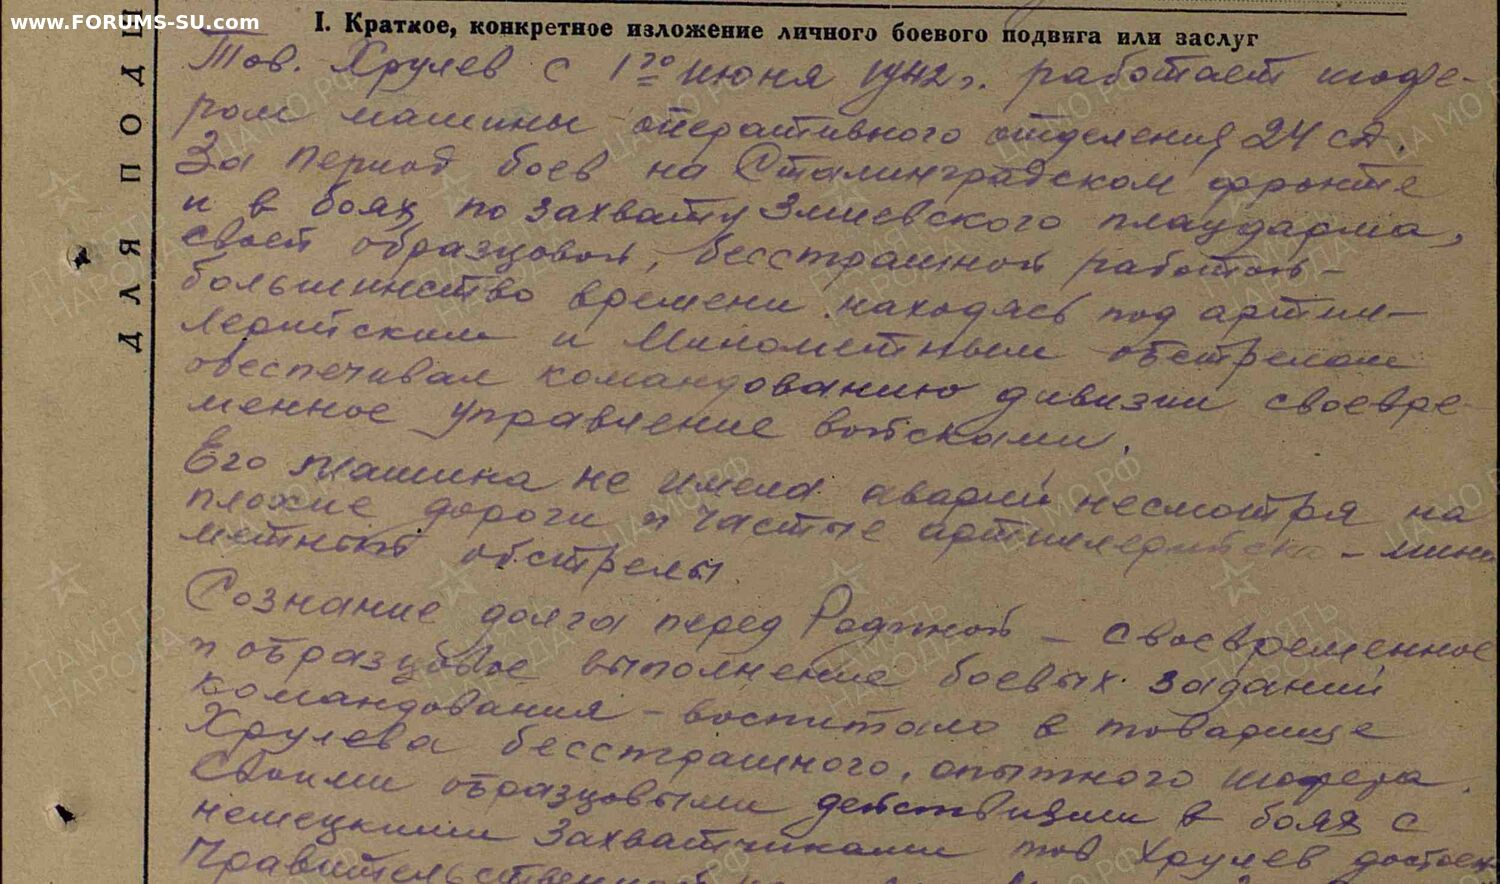 www.FORUMS-SU.com
ДЛЯ ПОД
I. Краткое, конкретное изложение личного боевого подвига или заслуг
Тов. Хрулев с 1го июня 1942г. работает шофе-
ром машины оперативного отделения 24 сд.
За период боев на Сталинградском фронте
и в боях по захвату Змиевского плацдарма,
своей образцовой, бесстрашной работой -
большинство времени находясь под артил-
лерийским и минометным обстрелом
обеспечивал командованию дивизии своевре-
менное управление войсками.
Его машина не имела аварий несмотря на
плохие дороги и частые артиллерийско - мино
метный обстрелы
Сознание долга перед Родиной - своевременное
и образцовое выполнение боевых заданий
командования - воспитало в товарище
Хрулева бесстрашного, опытного шофера.
Своими образцовыми действиями в боях с
немецкими захватчиками тов Хрулев достоен
Правительственной
ПАМЯТЬ НАРОДА
ЦАМО РФ